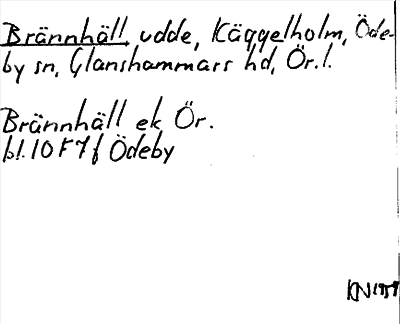 Brännhäll, udde, Käggelholm, Öde-
by sn, Glanshammars hd, Ör.l.
Brännhäll ek Ör.
bl.10F7f Ödeby
KN 1959